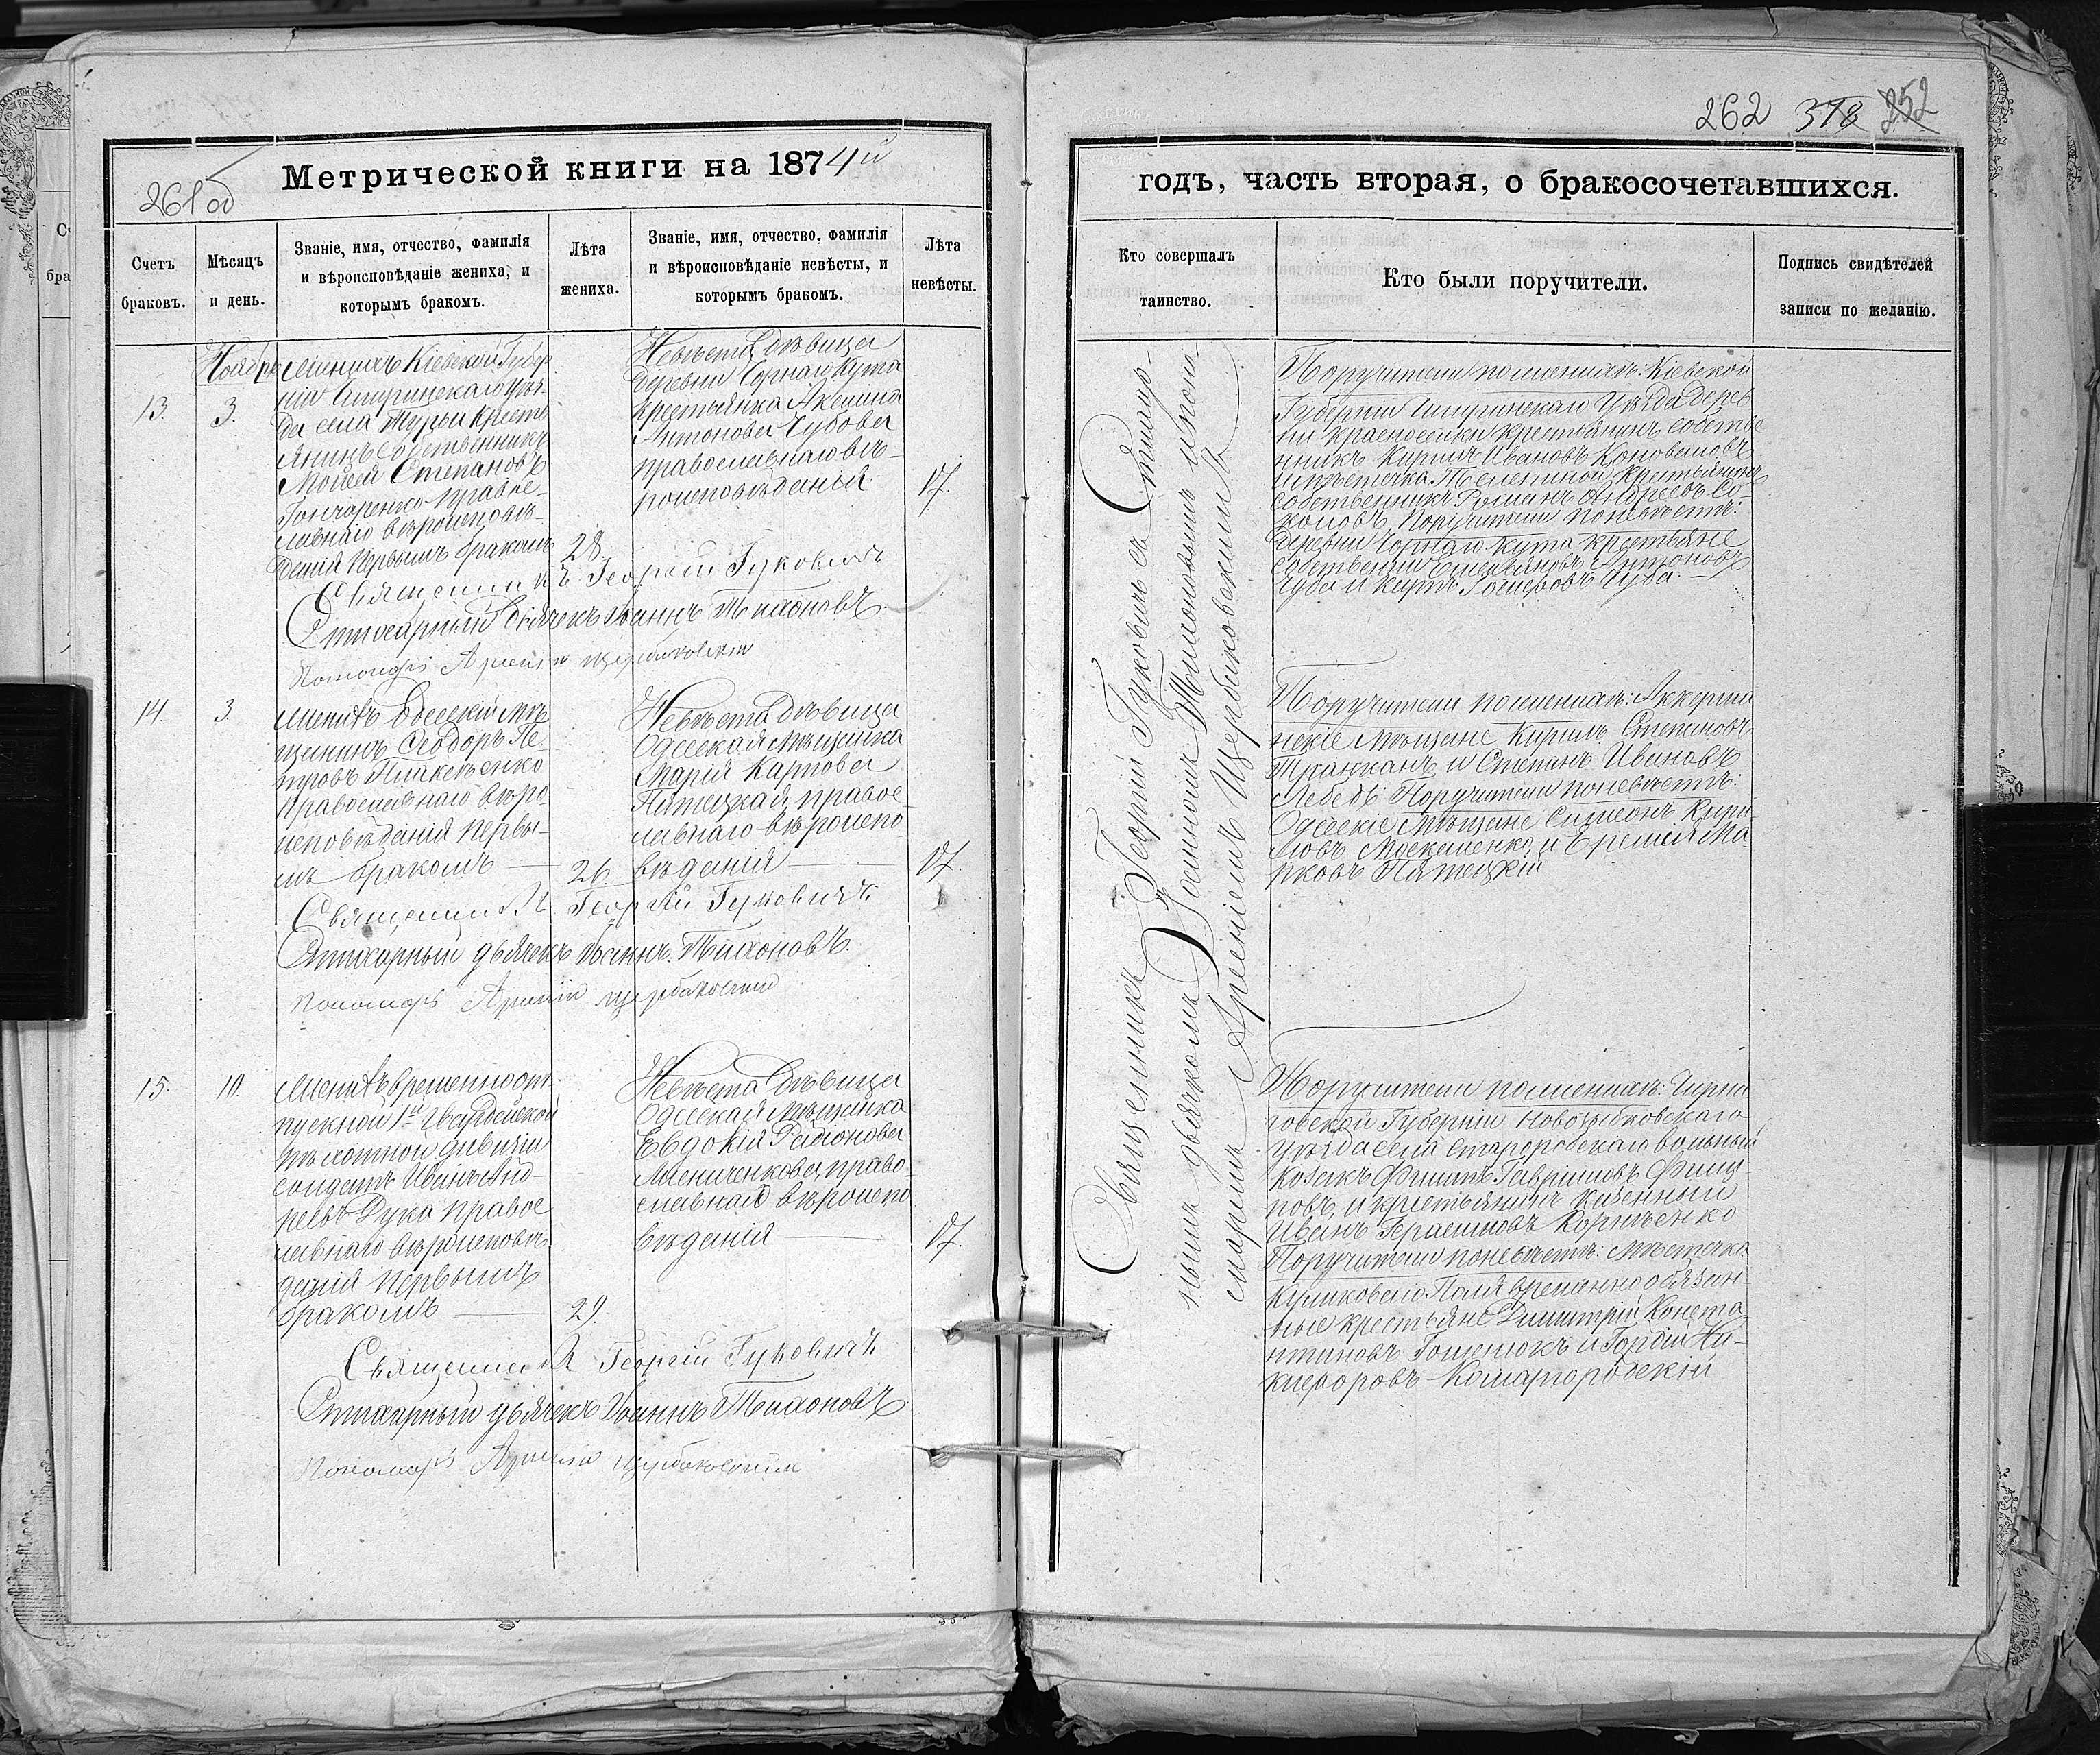 261 об
Метрической книги на 1874й
Счетъ браковъ.
Мѣсяцъ и день.
Званіе, имя, отчество, фамилія и вѣроисповѣданіе жениха, и которымъ бракомъ.
Лѣта жениха.
Званіе, имя, отчество, фамилія и вѣроисповѣданіе невѣсты, и которымъ бракомъ.
Лѣта невѣсты.
13.
Ноябрь
3.
Женихъ Кіевской Губер
ніи
да села Турьи Кресть
янинъ Собственникъ
Мойсей Степановъ
Гончаренко правос-
лавнаго вѣроисповѣ-
данія первымъ бракомъ
28.
Невѣста Дѣвица
Деревни Чорнаго Кута
Крестьянка Аксинія
Антонова Чубова
православнаго вѣ-
роисповѣданія.
17.
Священникъ Георгій Гуковичъ
Стихарный дьячекъ Іоаннъ Тихоновъ.
Пономарь Арсеній Щербаковскій
14.
3.
Женихъ Одесскій Мѣ
щанинъ Ѳеодоръ Пе
тровъ
Православнаго вѣро
исповѣданія Первы-
мъ бракомъ
26.
Невѣста Дѣвица
Одесская Мѣщанка
Марія Карпова
Пятецкая, правос
лавнаго вѣроиспо
вѣданія
17.
Священникъ Георгій Гуковичъ
Стихарный дьячекъ Іоаннъ Тихоновъ.
Пономарь Арсеній Щербаковскій
15.
10.
Женихъ временноот
пускной 1й Гвардейской
пѣхотной дивизіи
солдатъ Иванъ Анд-
реевъ Дука правос
лавнаго вѣроисповѣ
данія Первымъ
бракомъ
29.
Невѣста Дѣвица
Одесская Мѣщанка
Евдокія Радіонова
право-
славнаго вѣроиспо
вѣданія
17.
Священникъ Георгій Гуковичъ
Стихарный дьячекъ Іоаннъ Тихоновъ
Пономарь Арсеній Щербаковскій
262 318 252
годъ, часть вторая, о бракосочетавшихся.
Кто совершалъ таинство.
Кто были поручители.
Подпись свидѣтелей записи по желанію.
Священникъ Георгій Гуковичъ съ Стихар-
нымъ дьячкомъ Іоанномъ Тихоновымъ и поно-
маремъ Арсеніемъ Щербаковскимъ
Поручители по женихѣ: Кіевской
Губерніи Уѣзда Дерев
ни Красносилки Крестьянинъ собстве
нникъ Кирилъ Ивановъ Коноваловъ
и мѣстечка Телепиной Крестьянинъ
Собственникъ Романъ Андреевъ Со-
коловъ, Поручители по невѣстѣ:
Деревни Чорнаго Кута Крестьяне
Антоновъ
Чуба и Чуба.
Поручители по женихѣ: Аккерма
нскіе Мѣщане Кирилъ Степановъ
и Степанъ Ивановъ
Лебедь Поручители по невѣстѣ:
Одесскіе Мѣщане Симеонъ Кири-
ловъ Москаленко, и Еремія Ма
рковъ Пятецкій
Поручители по женихѣ: Черни
говской Губерніи Новозыбковскаго
уѣзда села вольный
Козакъ Филипъ Гавриловъ Филип-
повъ, и крестьянинъ казенный
Иванъ Герасимовъ Корнѣенко
Поручители по невѣстѣ: Мѣстечка
Куликового Поля временно обязан-
ные крестьяне Димитрій Конста
нтиновъ и Гордій Ни-
кифоровъ